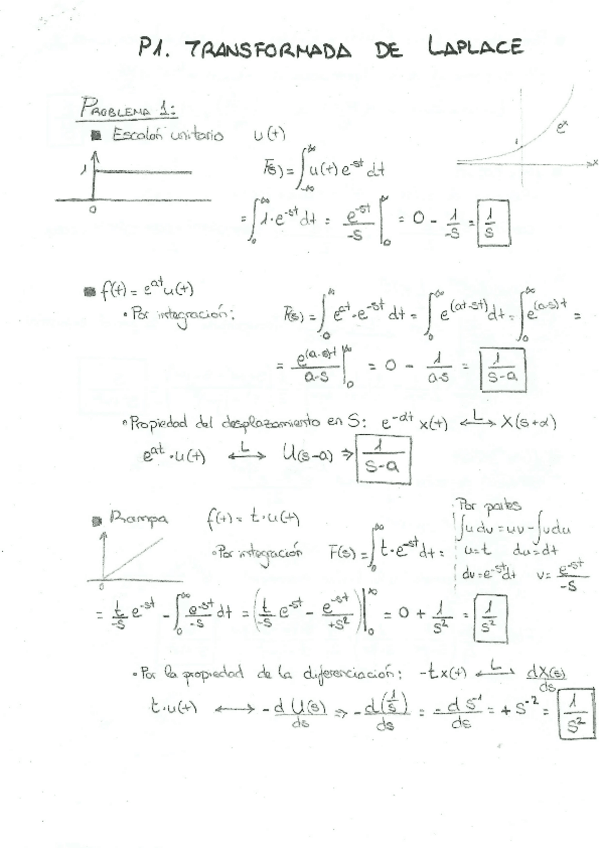 P1. TRANSFORMADA DE LAPLACE
PROBLEMA 1:
■ Escalón unitario u(t)
e^x
x
1
0
F(s) = ∫_{-∞}^{∞} u(t) e^{-st} dt
= ∫_0^∞ 1·e^{-st} dt = e^{-st}/-s |_0^∞ = 0 - 1/-s = 1/s
■ f(t) = e^{at} u(t)
• Por integración: F(s) = ∫_0^∞ e^{at}·e^{-st} dt = ∫_0^∞ e^{(at-st)} dt = ∫_0^∞ e^{(a-s)t} =
= e^{(a-s)t}/a-s |_0^∞ = 0 - 1/a-s = 1/s-a
• Propiedad del desplazamiento en S: e^{-αt} x(t) ⟷^L X(s+α)
e^{at}·u(t) ⟷^L U(s-a) ⇒ 1/s-a
■ Rampa f(t) = t·u(t)
0
• Por integración F(s) = ∫_0^∞ t·e^{-st} dt =
Por partes
∫u dv = uv - ∫v du
u=t du=dt
dv=e^{-st} dt v= e^{-st}/-s
= t/-s e^{-st} - ∫_0^∞ e^{-st}/-s dt = (t/-s e^{-st} - e^{-st}/+s²)|_0^∞ = 0 + 1/s² = 1/s²
• Por la propiedad de la diferenciación: -t x(t) ⟷^L dX(s)/ds
t·u(t) ⟷ -d U(s)/ds ⇒ -d(1/s)/ds = -d s^{-1}/ds = + s^{-2} = 1/s²